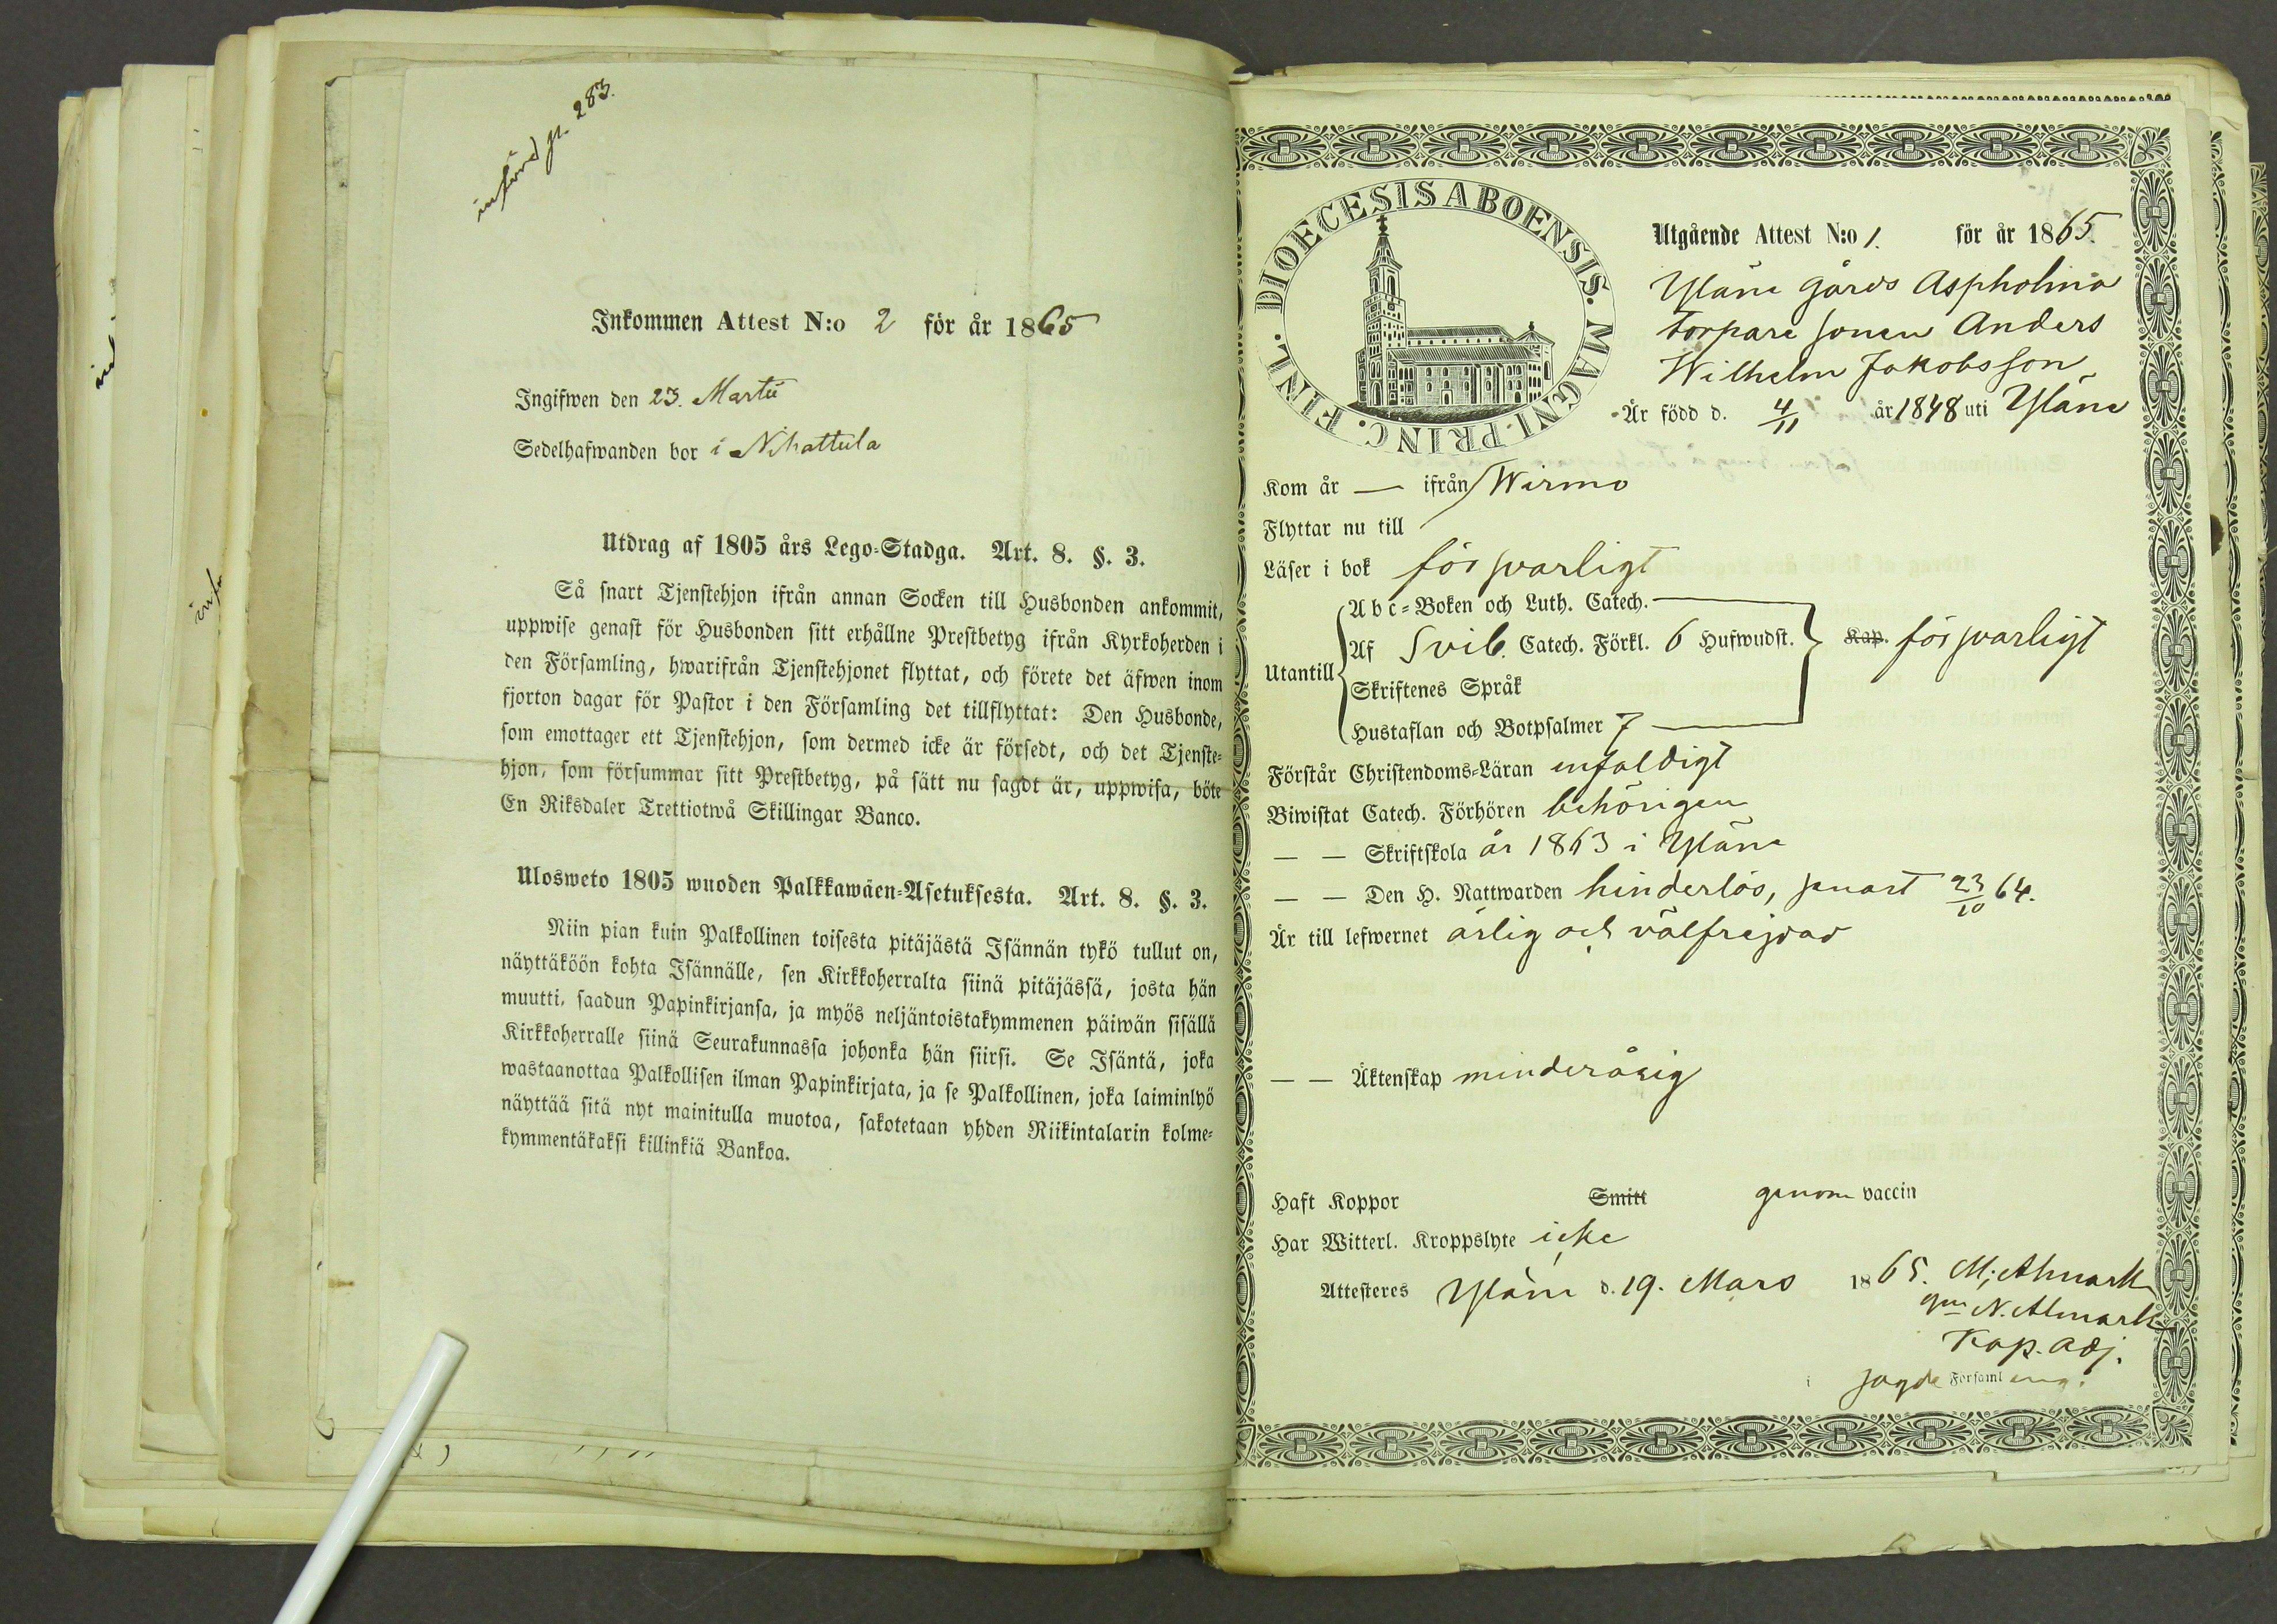 införd p. 283.
Inkommen Attest N:o 2 för år 1865
Ingifwen den 23. Martii
Sedelhafwanden bor i Nihattula
Utdrag af 1805 års Lego-Stadga. Art. 8. §. 3.
Så snart Tjenstehjon ifrån annan Socken till Husbonden ankommit,
uppwise genast för Husbonden sitt erhållne Prestbetyg ifrån Kyrkoherden i
den Församling, hwarifrån Tjenstehjonet flyttat, och förete det äfwen inom
fjorton dagar för Pastor i den Församling det tillflyttat: Den Husbonde,
som emottager ett Tjenstehjon, som dermed icke är försedt, och det Tjenste-
hjon, som försummar sitt Prestbetyg, på sätt nu sagdt är, uppwisa, böte
En Riksdaler Trettiotwå Skillingar Banco.
Ulosweto 1805 wuoden Palkkawäen-Asetuksesta. Art. 8. §. 3.
Niin pian kuin Palkollinen toisesta pitäjästä Isännän tykö tullut on,
näyttäköön kohta Isännälle, sen Kirkkoherralta siinä pitäjässä, josta hän
muutti, saadun Papinkirjansa, ja myös neljäntoistakymmenen päiwän sisällä
Kirkkoherralle siinä Seurakunnassa johonka hän siirsi. Se Isäntä, joka
wastaanottaa Palkollisen ilman Papinkirjata, ja se Palkollinen, joka laiminlyö
näyttää sitä nyt mainitulla muotoa, sakotetaan yhden Riikintalarin kolme-
kymmentäkaksi killinkiä Bankoa.
DIOECESIS ABOENSIS. MAGNI. PRINC. FINL.
Utgående Attest N:o 1. för år 1865.
Yläne gårds Aspholma
torpare sonen Anders
Wilhelm Jakobsson
Är född d. 4/11 år 1848 uti Yläne
Kom år — ifrån
Flyttar nu till Wirmo
Läser i bok försvarligt
Utantill
Abc-Boken och Luth. Catech. —
Af Svib. Catech. Förkl. 6 Hufwudst. Kap. försvarligt
Skriftenes Språk
Hustaflan och Botpsalmer 7 —
Förstår Christendoms-Läran enfaldigt
Biwistat Catech. Förhören behörigen
— — Skriftskola år 1863 i Yläne
— — Den H. Nattwarden hinderlös, senast 23/10 64.
Är till lefwernet ärlig och välfrejdad
— — Äktenskap minderårig
Haft Koppor Smitt genom vaccin
Har Witterl. Kroppslyte icke
Attesteres Yläne d. 19. Mars 1865. M; Almark
gm N. Almark
Kap. adj.
i sagde Församling.